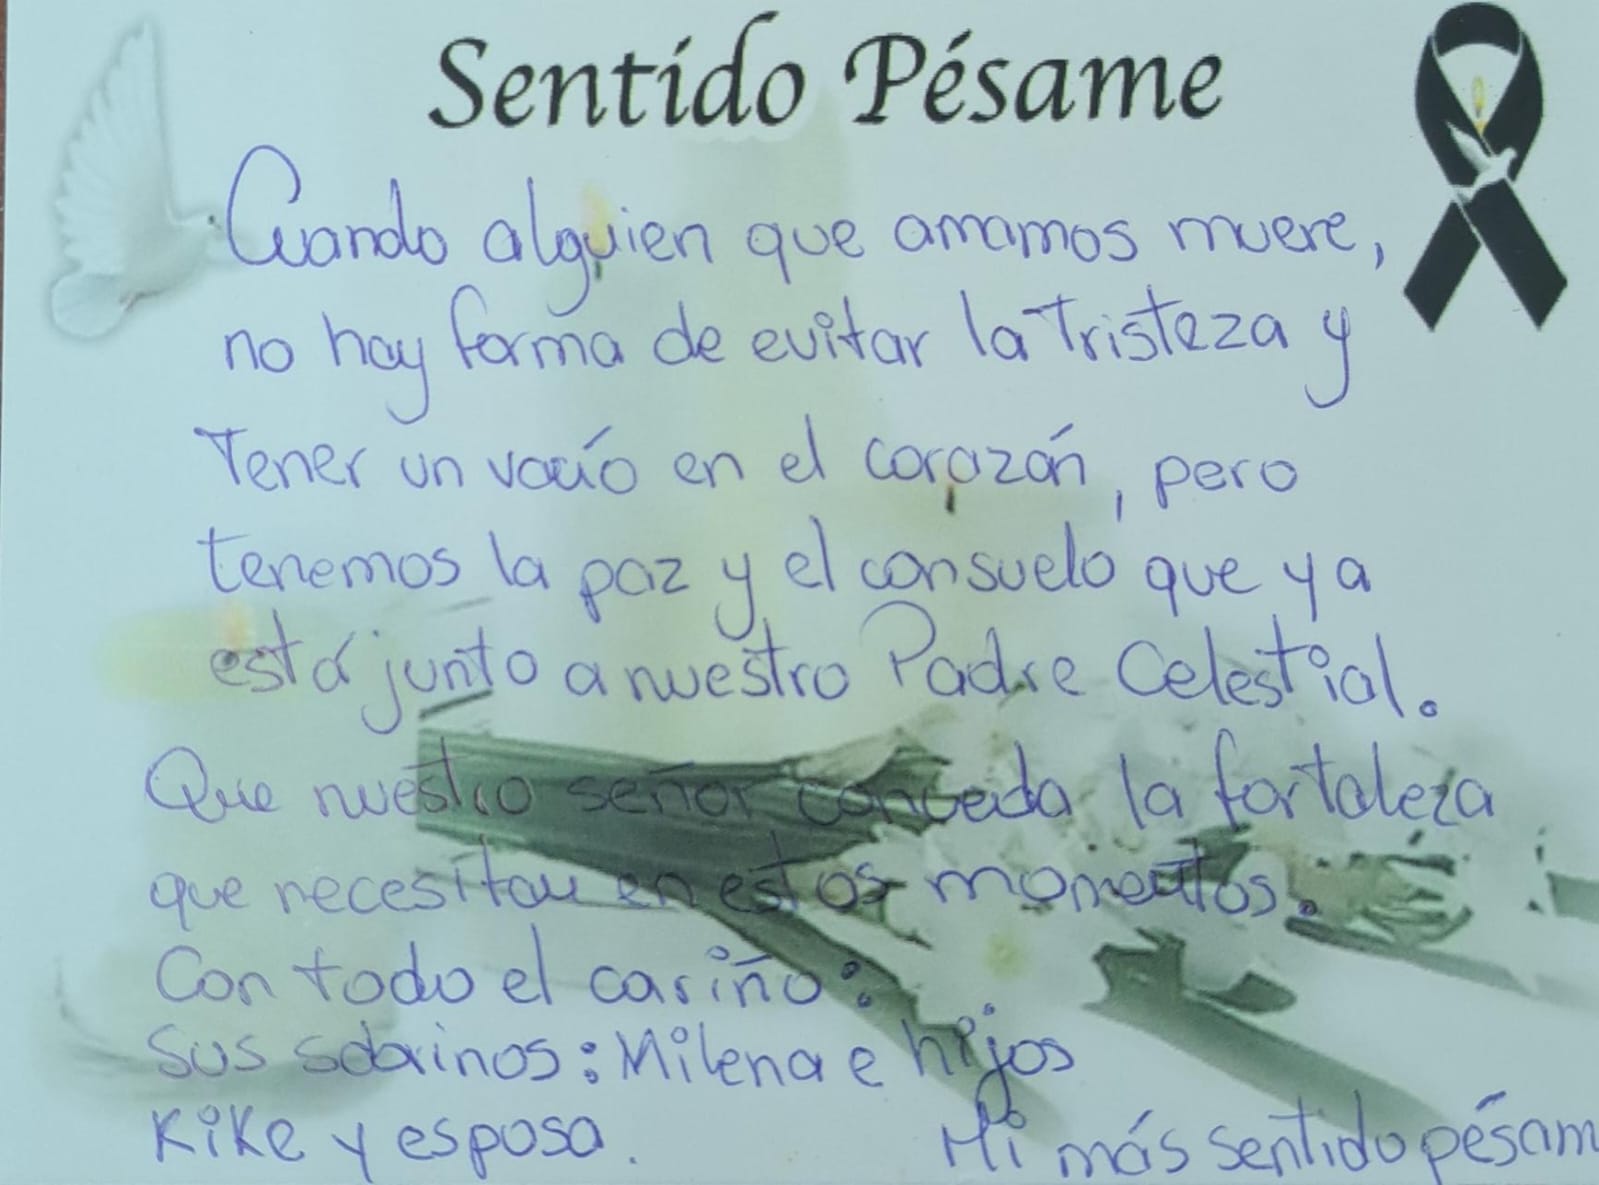 Sentido Pésame
Cuando alguien que amamos muere,
no hay forma de evitar la Tristeza y
Tener un vacío en el corazón, pero
tenemos la paz y el consuelo que ya
está junto a nuestro Padre Celestial.
Que nuestro señor conceda la fortaleza
que necesitan en estos momentos.
Con todo el cariño:
Sus sobrinos: Milena e hijos
Kike y esposa.
Mi más sentido pésam